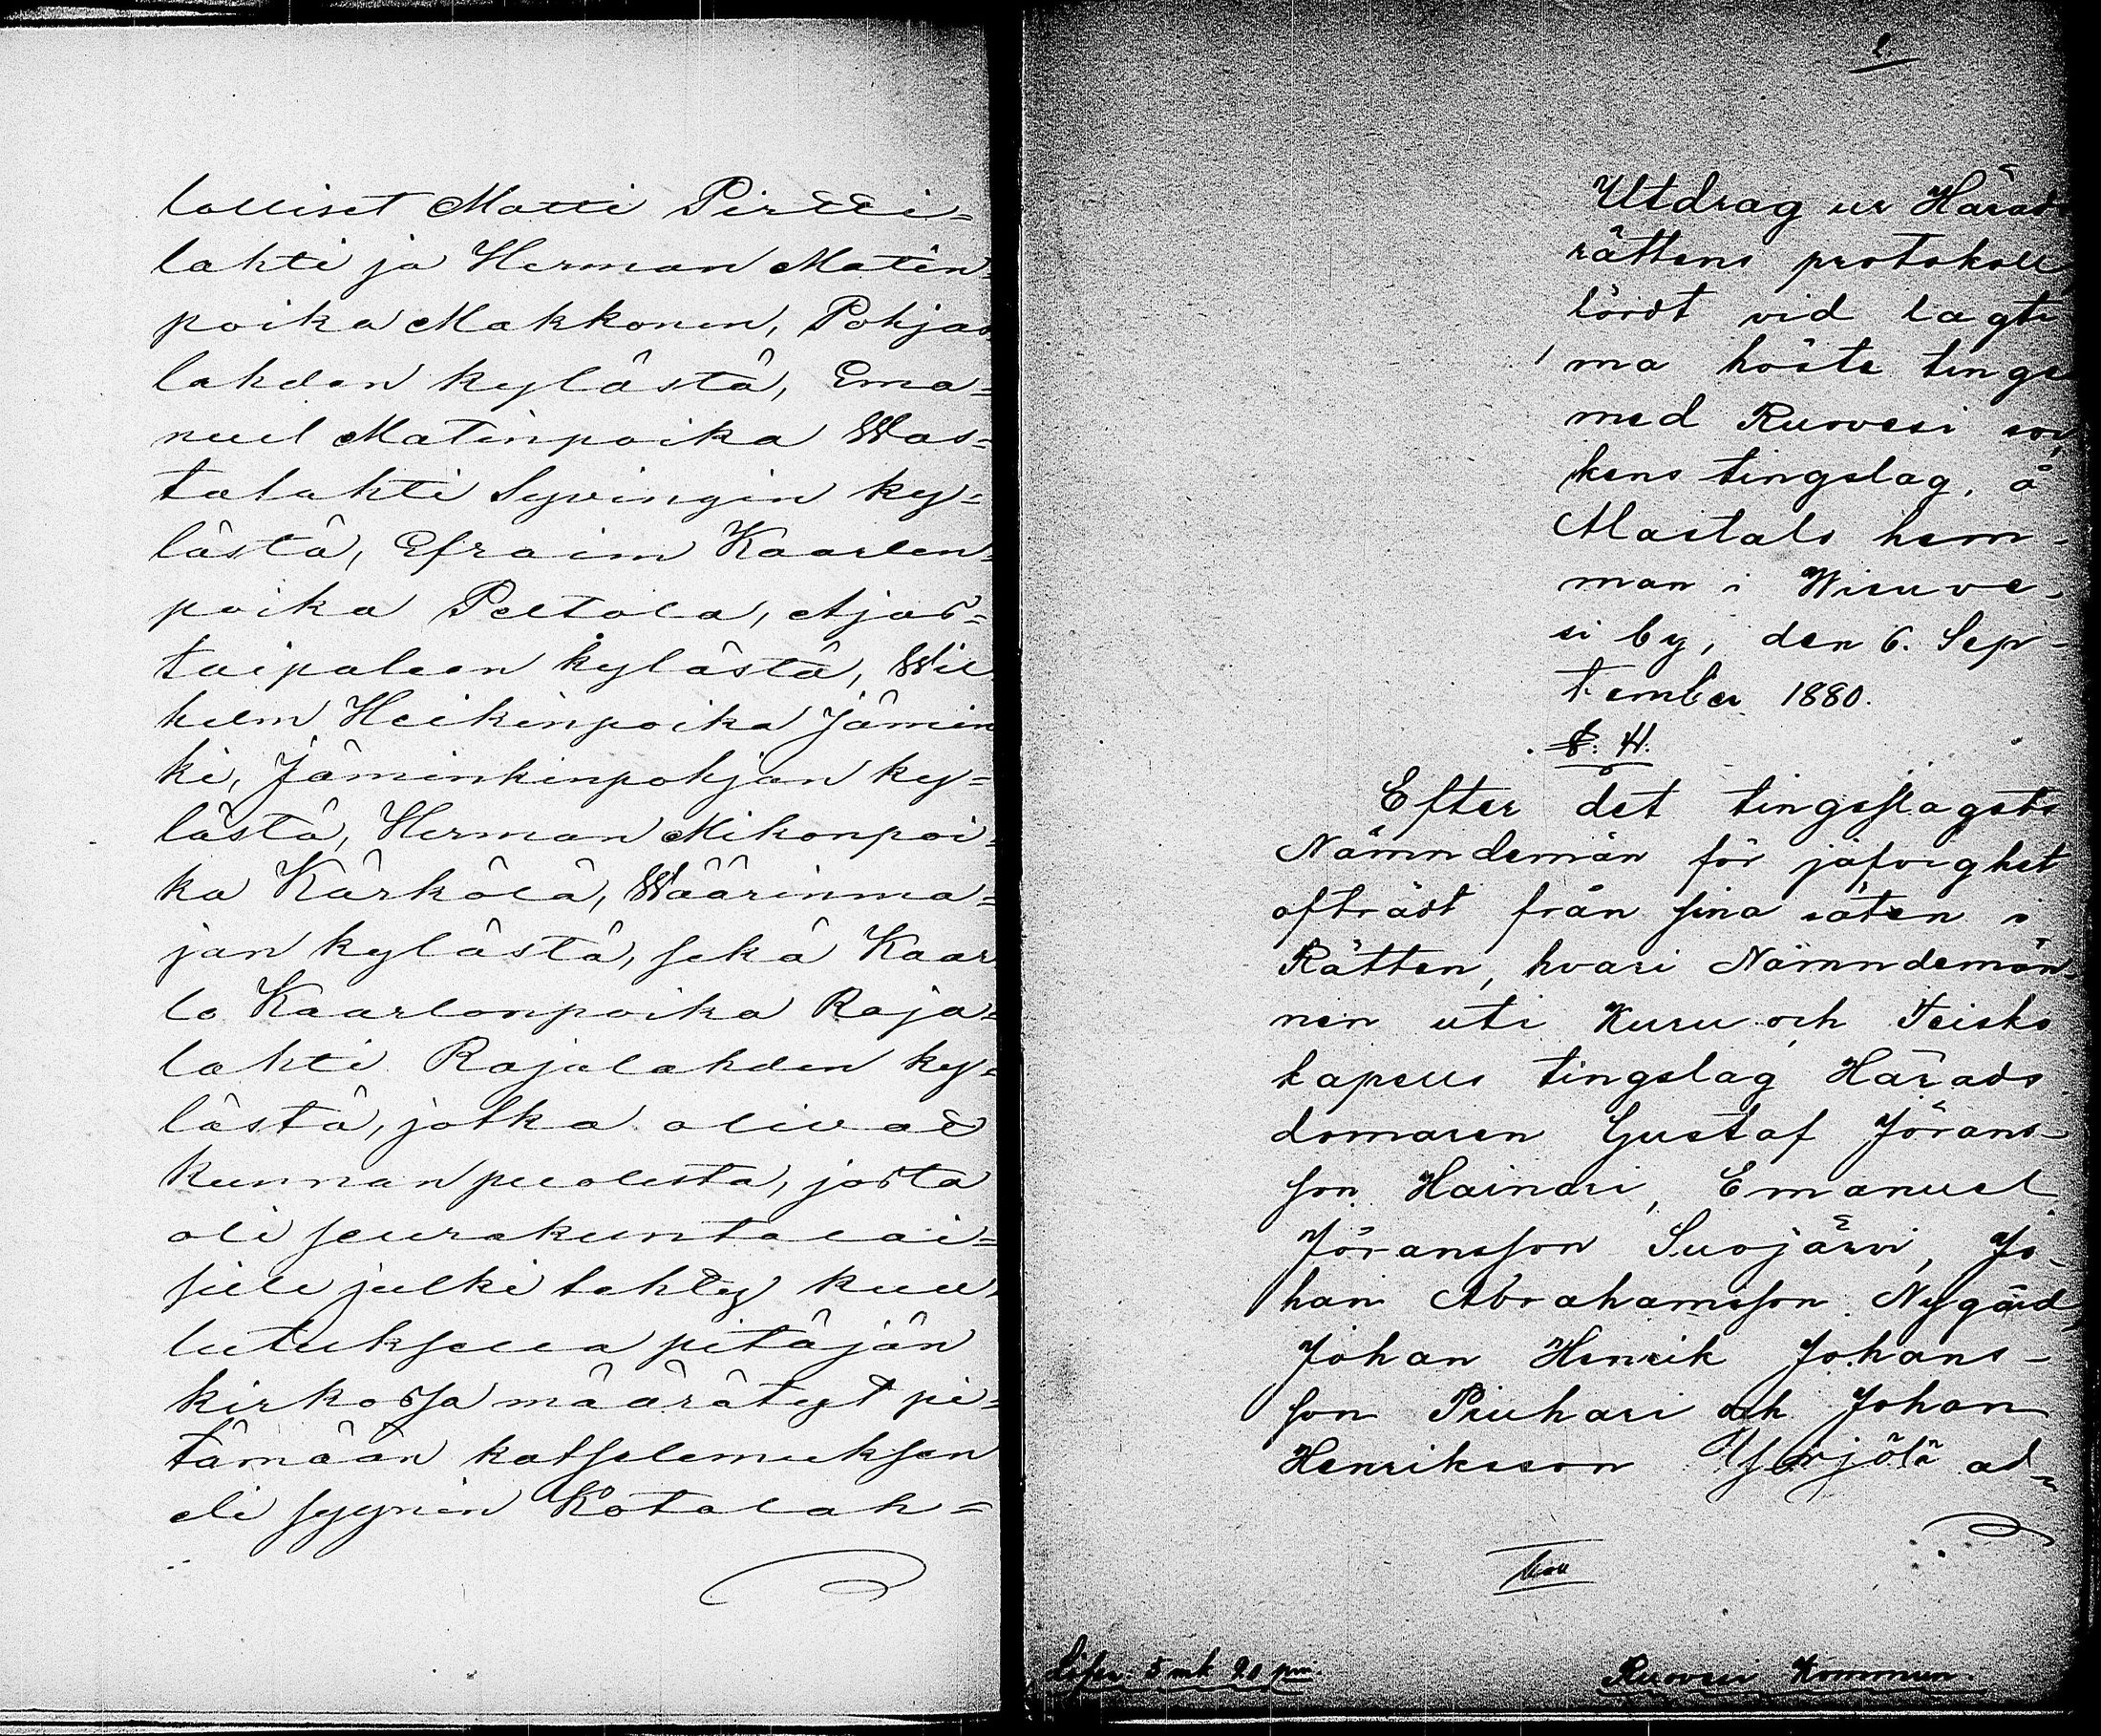 lolliset Matti Pirtti=
lahti ja Herman Matin=
poika Makkonen, Pohjas
lahden kylästä, Ema=
nuel Matinpoika Was=
talahti Sywingin ky=
lästä, Efraim Kaarlen=
poika Peltola, Ajos=
taipaleen kylästä, Wil
helm Heikinpoika Jämin
ki, Jäminkinpohjan ky=
lästä, Herman Mikonpoi=
ka Kärkölä, Wäärinma=
jan kylästä, sekä Kaar
lo Kaarlonpoika Raja=
lahti Rajalahden ky=
lästä, jotka oliwat
kunnan puolesta, josta
oli seurakuntalai=
sille julki tehty kuu
lutuksella pitäjän
kirkossa määrätyt pi=
tämään katselemuksen
eli syynin Kotalah=
2
Utdrag ur Härads
rättens protokoll,
fördt vid lagti
ma höste tinge
med Ruovesi soc
kens tingslag, å
Alastalo hem-
man i Wisuve-
si by, den 6. Sep-
tember 1880.
Efter det tingslagets
Nämndemän för jäfvighet
afträdt från sina säten i
Rätten, hvari Nämndemän-
nen uti Kuru och Teisko
kapells tingslag Härads
domaren Gustaf Jörans-
son Hainari, Emanuel
Jöransson Suojärvi, Jo-
han Abrahamsson Nygård,
Johan Henrik Johans-
son Piuhari och Johan
Henriksson Yrjölä ad-
Lösen: 5 mk 20 pni.
Ruovesi Kommun.